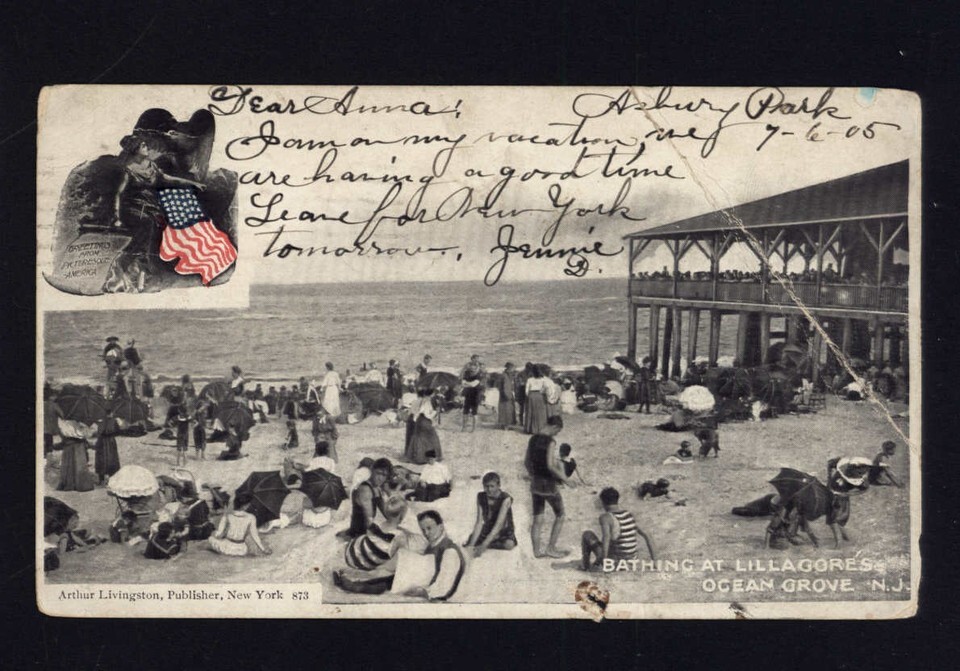 Dear Anna! Asbury Park
I am on my vacation, we 7-6-05
are having a good time
Leave for New York
tomorrow. Jennie
D.
GREETINGS
FROM
PICTURESQUE
AMERICA
BATHING AT LILLAGORES
OCEAN GROVE N.J.
Arthur Livingston, Publisher, New York 873